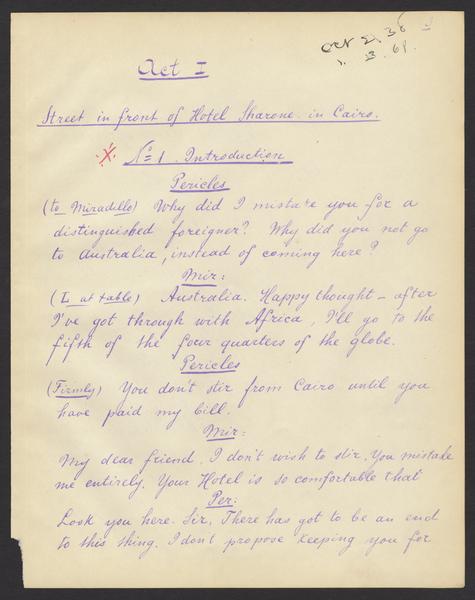 Oct 21 38
Act I
Street in front of Hotel Sharone in Cairo.
X No = 1. Introduction
Pericles
(to Miradillo) Why did I mistake you for a
distinguished foreigner? Why did you not go
to Australia, instead of coming here?
Mir:
(L at table) Australia. Happy thought - after
I've got through with Africa, I'll go to the
fifth of the four quarters of the globe.
Pericles
(Firmly) You don't stir from Cairo until you
have paid my bill.
Mir:
My dear friend, I don't wish to stir. You mistake
me entirely. Your Hotel is so comfortable that
Per:
Look you here. Sir, There has got to be an end
to this thing. I don't propose keeping you for